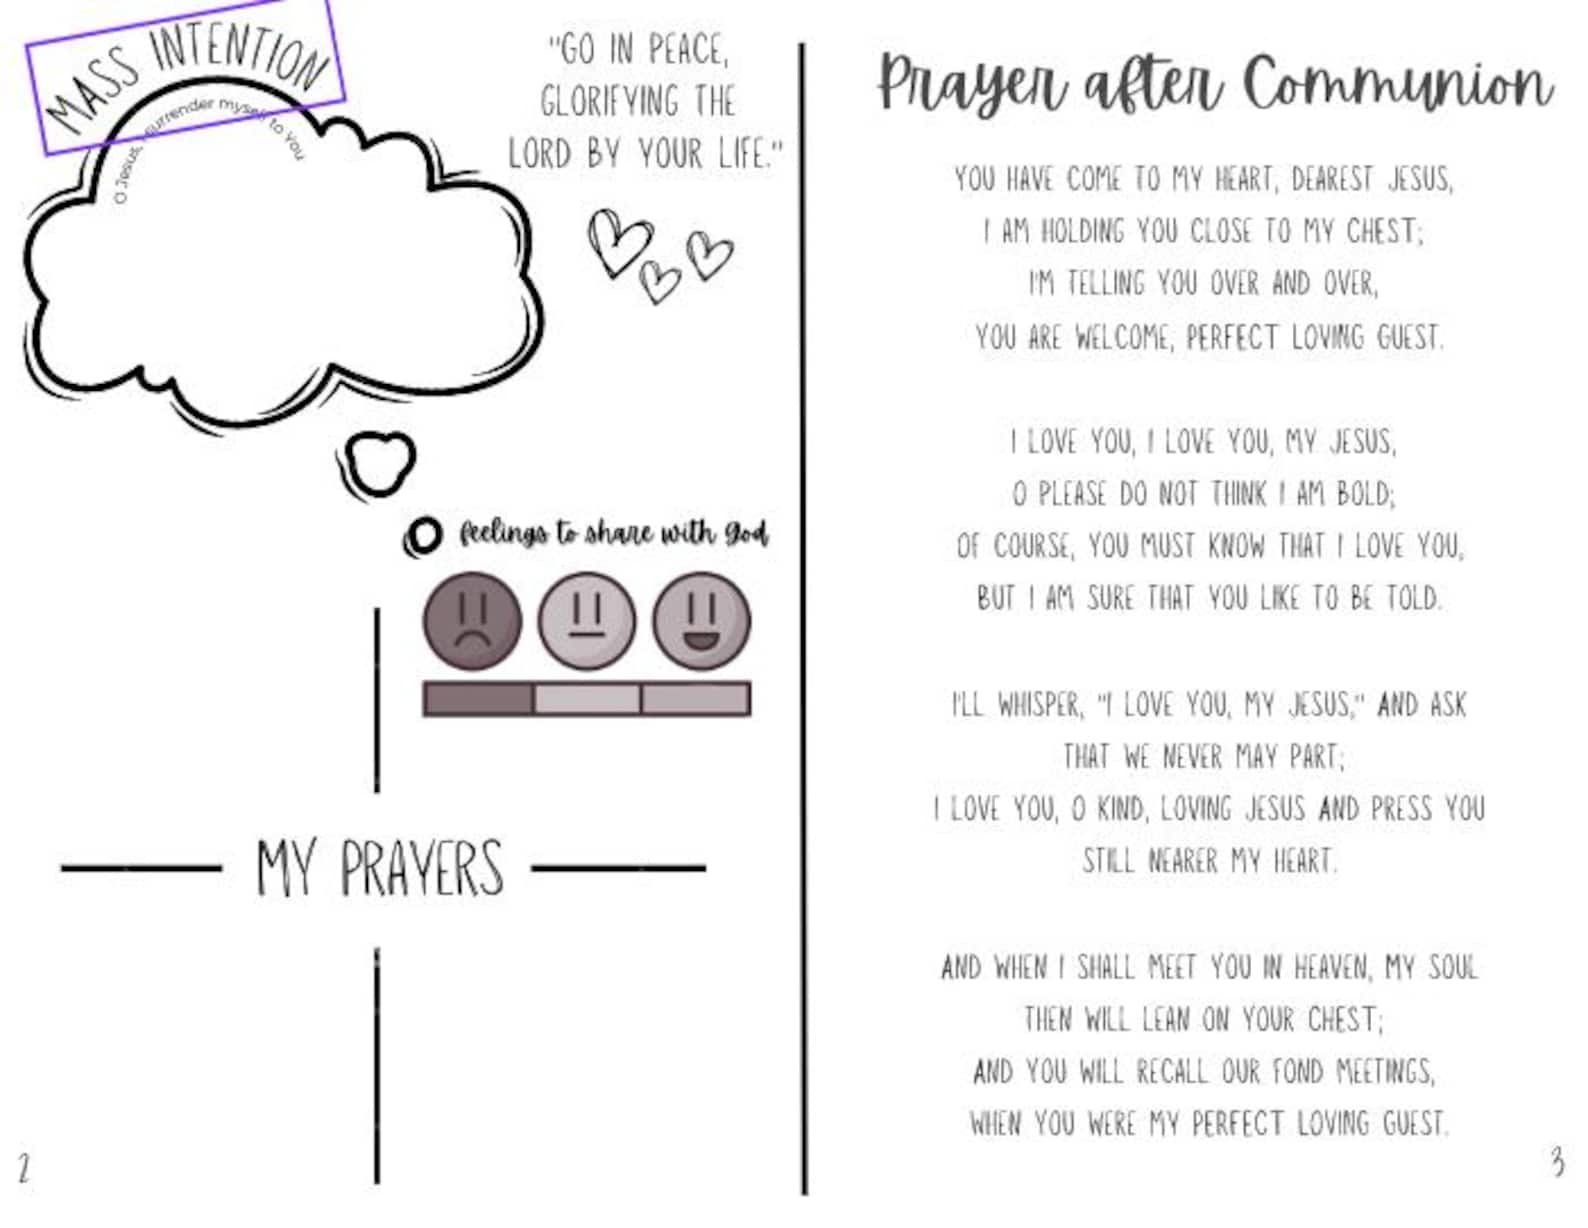 MASS INTENTION
O Jesus, I surrender myself to You
"GO IN PEACE,
GLORIFYING THE
LORD BY YOUR LIFE."
feelings to share with god
MY PRAYERS
2
Prayer after Communion
YOU HAVE COME TO MY HEART, DEAREST JESUS,
I AM HOLDING YOU CLOSE TO MY CHEST;
I'M TELLING YOU OVER AND OVER,
YOU ARE WELCOME, PERFECT LOVING GUEST.
I LOVE YOU, I LOVE YOU, MY JESUS,
O PLEASE DO NOT THINK I AM BOLD;
OF COURSE, YOU MUST KNOW THAT I LOVE YOU,
BUT I AM SURE THAT YOU LIKE TO BE TOLD.
I'LL WHISPER, "I LOVE YOU, MY JESUS," AND ASK
THAT WE NEVER MAY PART;
I LOVE YOU, O KIND, LOVING JESUS AND PRESS YOU
STILL NEARER MY HEART.
AND WHEN I SHALL MEET YOU IN HEAVEN, MY SOUL
THEN WILL LEAN ON YOUR CHEST;
AND YOU WILL RECALL OUR FOND MEETINGS,
WHEN YOU WERE MY PERFECT LOVING GUEST.
3